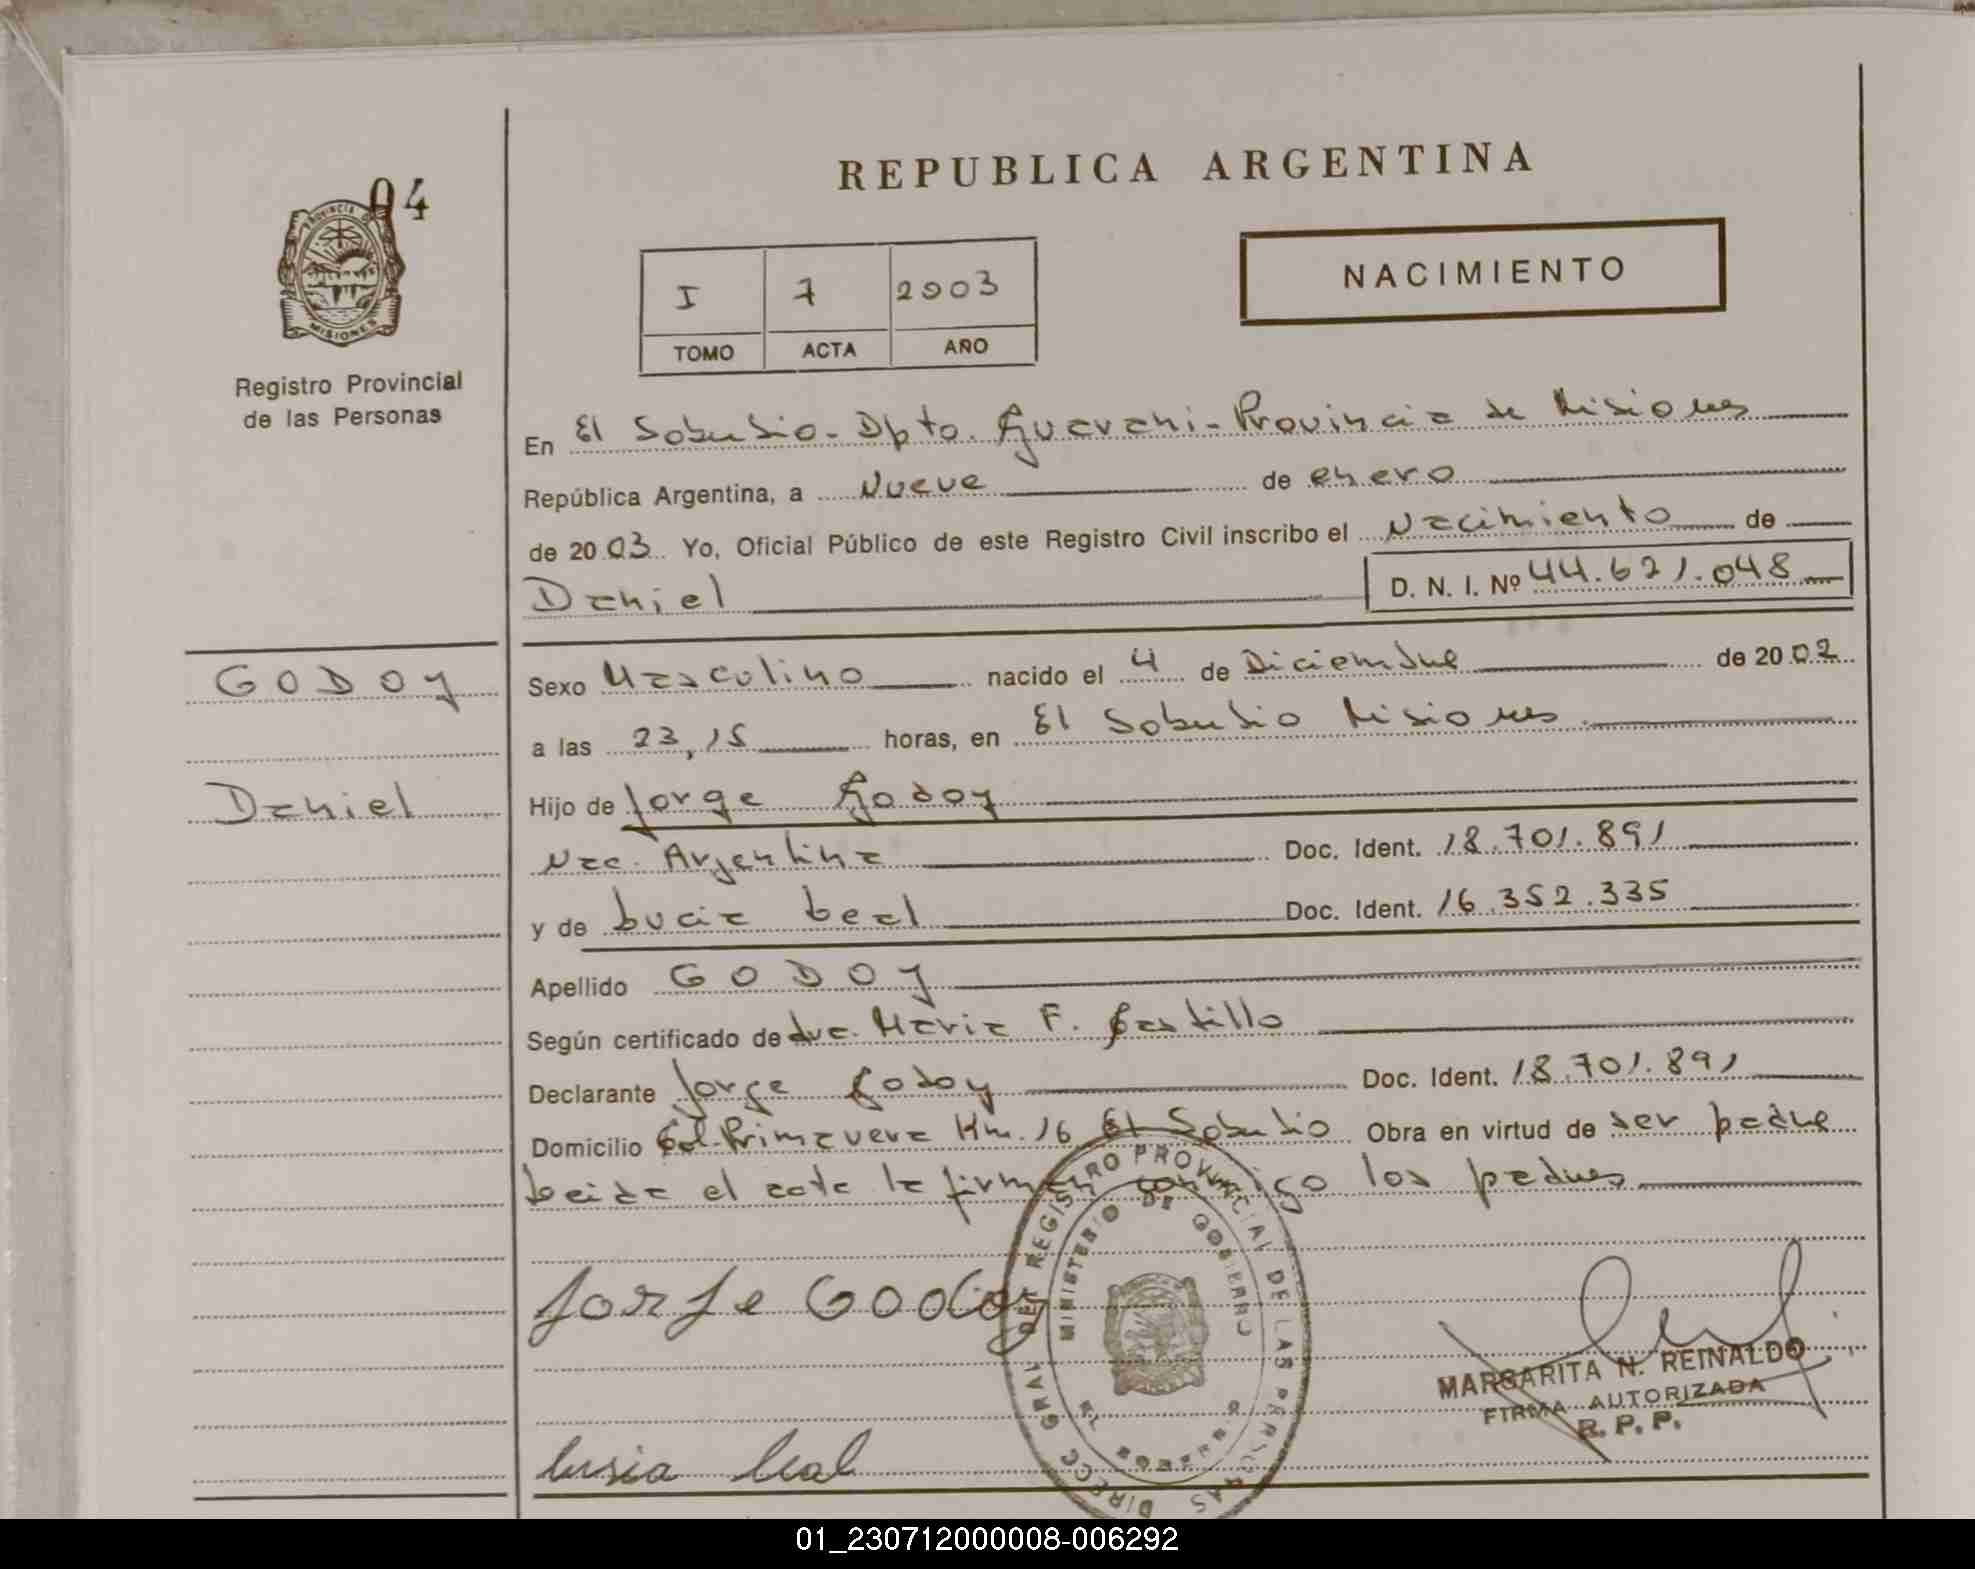 04
PROVINCIA DE
MISIONES
Registro Provincial
de las Personas
REPUBLICA ARGENTINA
I 7 2003
TOMO ACTA AÑO
NACIMIENTO
En El Soberbio - Dpto. Guarani - Provincia de Misiones
República Argentina, a Nueve de enero
de 2003 Yo, Oficial Público de este Registro Civil inscribo el Nacimiento de
Daniel D. N. I. Nº 44.621.048
GODOY
Daniel
Sexo Masculino nacido el 4 de Diciembre de 2002
a las 23,15 horas, en El Soberbio Misiones
Hijo de Jorge Godoy
Nac. Argentina Doc. Ident. 18.701.891
y de Lucia Leal Doc. Ident. 16.352.335
Apellido GODOY
Según certificado de dra. Maria F. Castillo
Declarante Jorge Godoy Doc. Ident. 18.701.891
Domicilio Col. Primavera Km. 16 El Soberbio Obra en virtud de ser padre
Leida el acta la firman conmigo los padres
Jorge Godoy
DIRECC GRAL DEL REGISTRO PROVINCIAL DE LAS PERSONAS
MINISTERIO DE GOBIERNO
MARGARITA N. REINALDO
FIRMA AUTORIZADA
R. P. P.
Lusia Leal
01_230712000008-006292